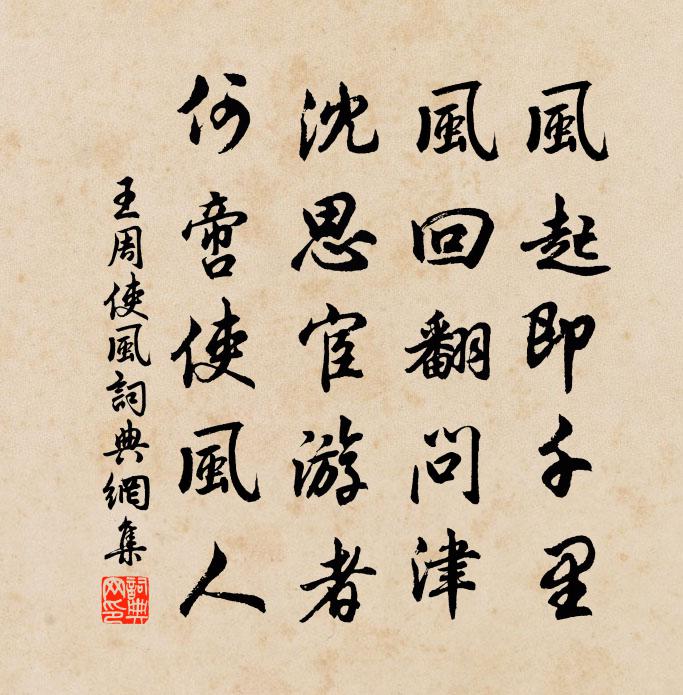 風起即千里
風回翻問津
沈思宦游者
何啻使風人
王周使風詞典網集
詞典网印